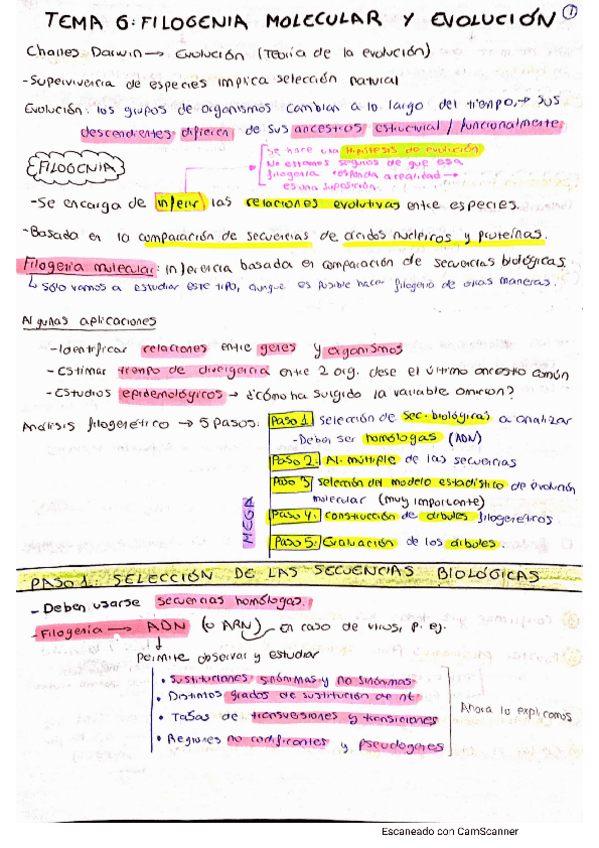 TEMA 6: FILOGENIA MOLECULAR Y EVOLUCIÓN ①
Charles Darwin → Evolución (Teoría de la evolución)
- Supervivencia de especies implica selección natural
Evolución: los grupos de organismos cambian a lo largo del tiempo, → sus
descendientes difieren de sus ancestros estructural / funcionalmente.
Se hace una hipótesis de evolución.
No estamos seguros de que esa
filogenia responda a realidad →
es una suposición.
FILOGENIA
- Se encarga de inferir las relaciones evolutivas entre especies.
- Basada en la comparación de secuencias de ácidos nucleicos y proteínas.
Filogenia molecular: inferencia basada en comparación de secuencias biológicas.
↳ Sólo vamos a estudiar este tipo, aunque es posible hacer filogenia de otras maneras.
Algunas aplicaciones
- Identificar relaciones entre genes y organismos
- Estimar tiempo de divergencia entre 2 org. desde el último ancestro común
- Estudios epidemiológicos → ¿cómo ha surgido la variable omicron?
Análisis filogenético → 5 pasos:
Paso 1: Selección de sec. biológicas a analizar
- Deben ser homólogas (ADN)
Paso 2: Al. múltiple de las secuencias
Paso 3: selección del modelo estadístico de evolución
molecular (muy importante)
Paso 4: construcción de árboles filogenéticos
Paso 5: Evaluación de los árboles.
MEGA
PASO 1: SELECCIÓN DE LAS SECUENCIAS BIOLÓGICAS
- Deben usarse secuencias homólogas.
- Filogenia → ADN (o ARN) en caso de virus, p. ej.
Permite observar y estudiar
• Sustituciones sinónimas y no sinónimas
• Distintos grados de sustitución de nt
• Tasas de transversiones y transiciones
• Regiones no codificantes y pseudogenes
Ahora lo explicamos
Escaneado con CamScanner